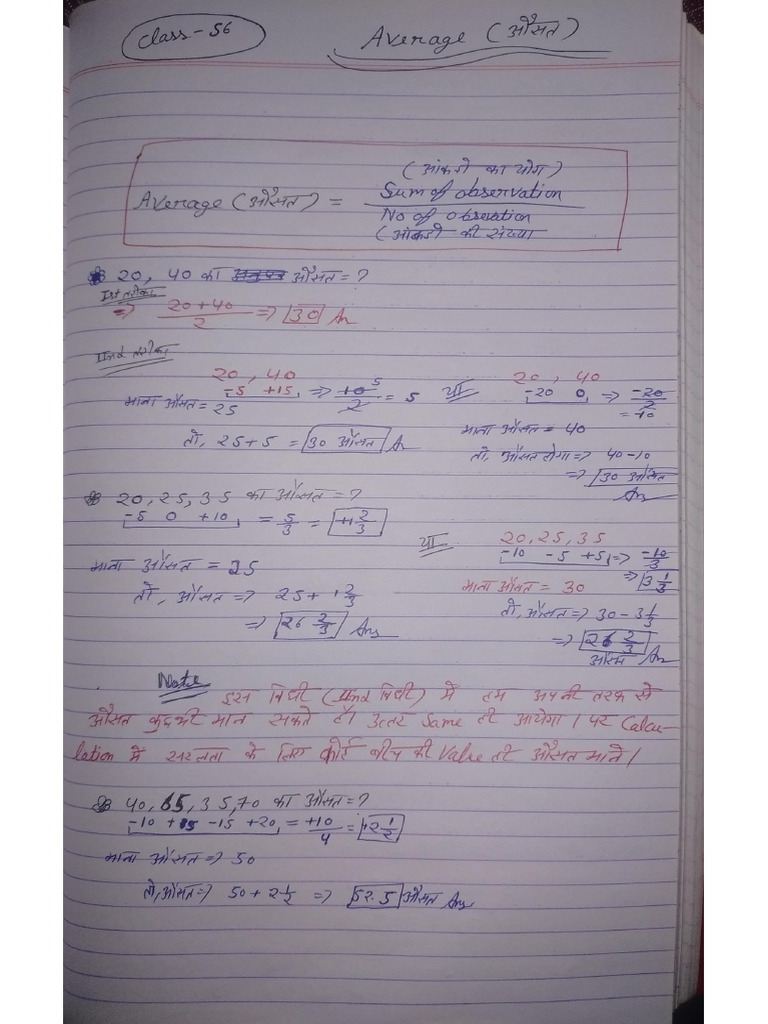 Class-56
Average (औसत)
(आंकडो का योग)
Average (औसत) = Sum of observation
No of observation
(आंकडो की संख्या
20, 40 का औसत = ?
Ist तरीका
=> 20+40 / 2 => 30 An
IInd तरीका
20, 40
-5 +15 => +10 / 2 = 5
माना औसत = 25
तो, 25+5 = 30 औसत A
या
20, 40
-20 0 => -20 / 2
= -10
माना औसत = 40
तो, औसत होगा => 40-10
=> 30 औसत
An
20, 25, 35 का औसत = ?
-5 0 +10 = 5/3 = +1 2/3
माना औसत = 25
तो, औसत => 25 + 1 2/3
=> 26 2/3 Ans
या
20, 25, 35
-10 -5 +5 => -10/3
=> 3 1/3
माना औसत = 30
तो, औसत => 30 - 3 1/3
=> 26 2/3 An
औसत
Note
इस विधी (IInd विधी) में हम अपनी तरफ से
औसत कुछ भी मान सकते है। उत्तर Same ही आयेगा। पर Calcu-
lation में सरलता के लिए कोई बीच की Value ही औसत माने।
40, 65, 35, 70 का औसत = ?
-10 +15 -15 +20 = +10/4 = +2 1/2
माना औसत => 50
तो, औसत => 50 + 2 1/2 => 52.5 औसत Ans